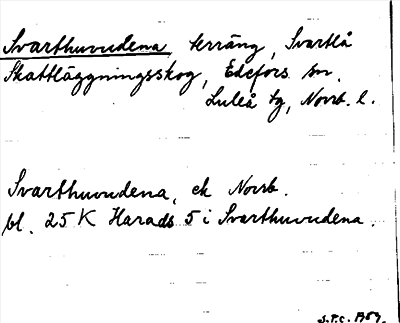 Svarthuvudena terräng, Svartlå
Skattläggningsskog, Edefors sn.
Luleå tg, Norrb. l.
Svarthuvudena, ek Norrb.
bl. 25 K Harads 5 i Svarthuvudena.
J.P.C. 1969.